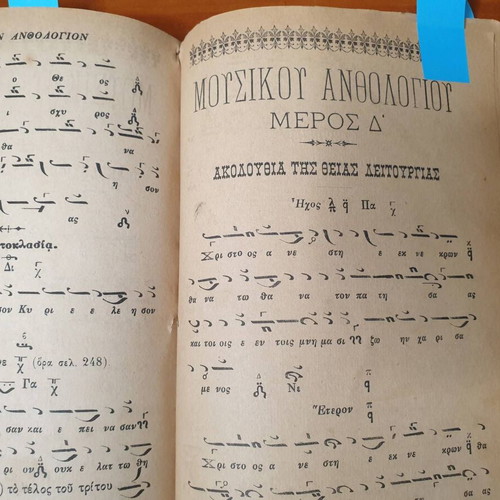 Ν ΑΝΘΟΛΟΓΙΟΝ
ο Θε ος
ι σχυ ρος
θα να
η σον
ας
τοκλασίᾳ.
Δι
σον Κυ ρι ε ε λε η σον
(ὅρα σελ. 248)
Γα
σαν και ε πει να σαν
ρι ον ουκ ε λατ τω θη
) τὸ τέλος τοῦ τρίτου
ΜΟΥΣΙΚΟΥ ΑΝΘΟΛΟΓΙΟΥ
ΜΕΡΟΣ Δ΄
ΑΚΟΛΟΥΘΙΑ ΤΗΣ ΘΕΙΑΣ ΛΕΙΤΟΥΡΓΙΑΣ
Ἦχος Πα
Χρι στο ος α νε στη ε εκ νε κρων
θα να τω θα να τον πα τη σα ας
και τοι οις ε εν τοις μνη μα σι ζω ην χα ρι σα
με νος Νε
Ἕτερον
Χρι στο ος α νε στη ε εκ νε κρων θα